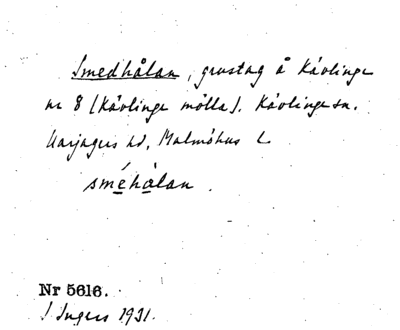 Smedhålan, grustag å Kävlinge
nr 8 (Kävlinge mölla). Kävlinge sn.
Harjagers hd, Malmöhus L
sméhålan.
Nr 5616.
I Ingers 1931.